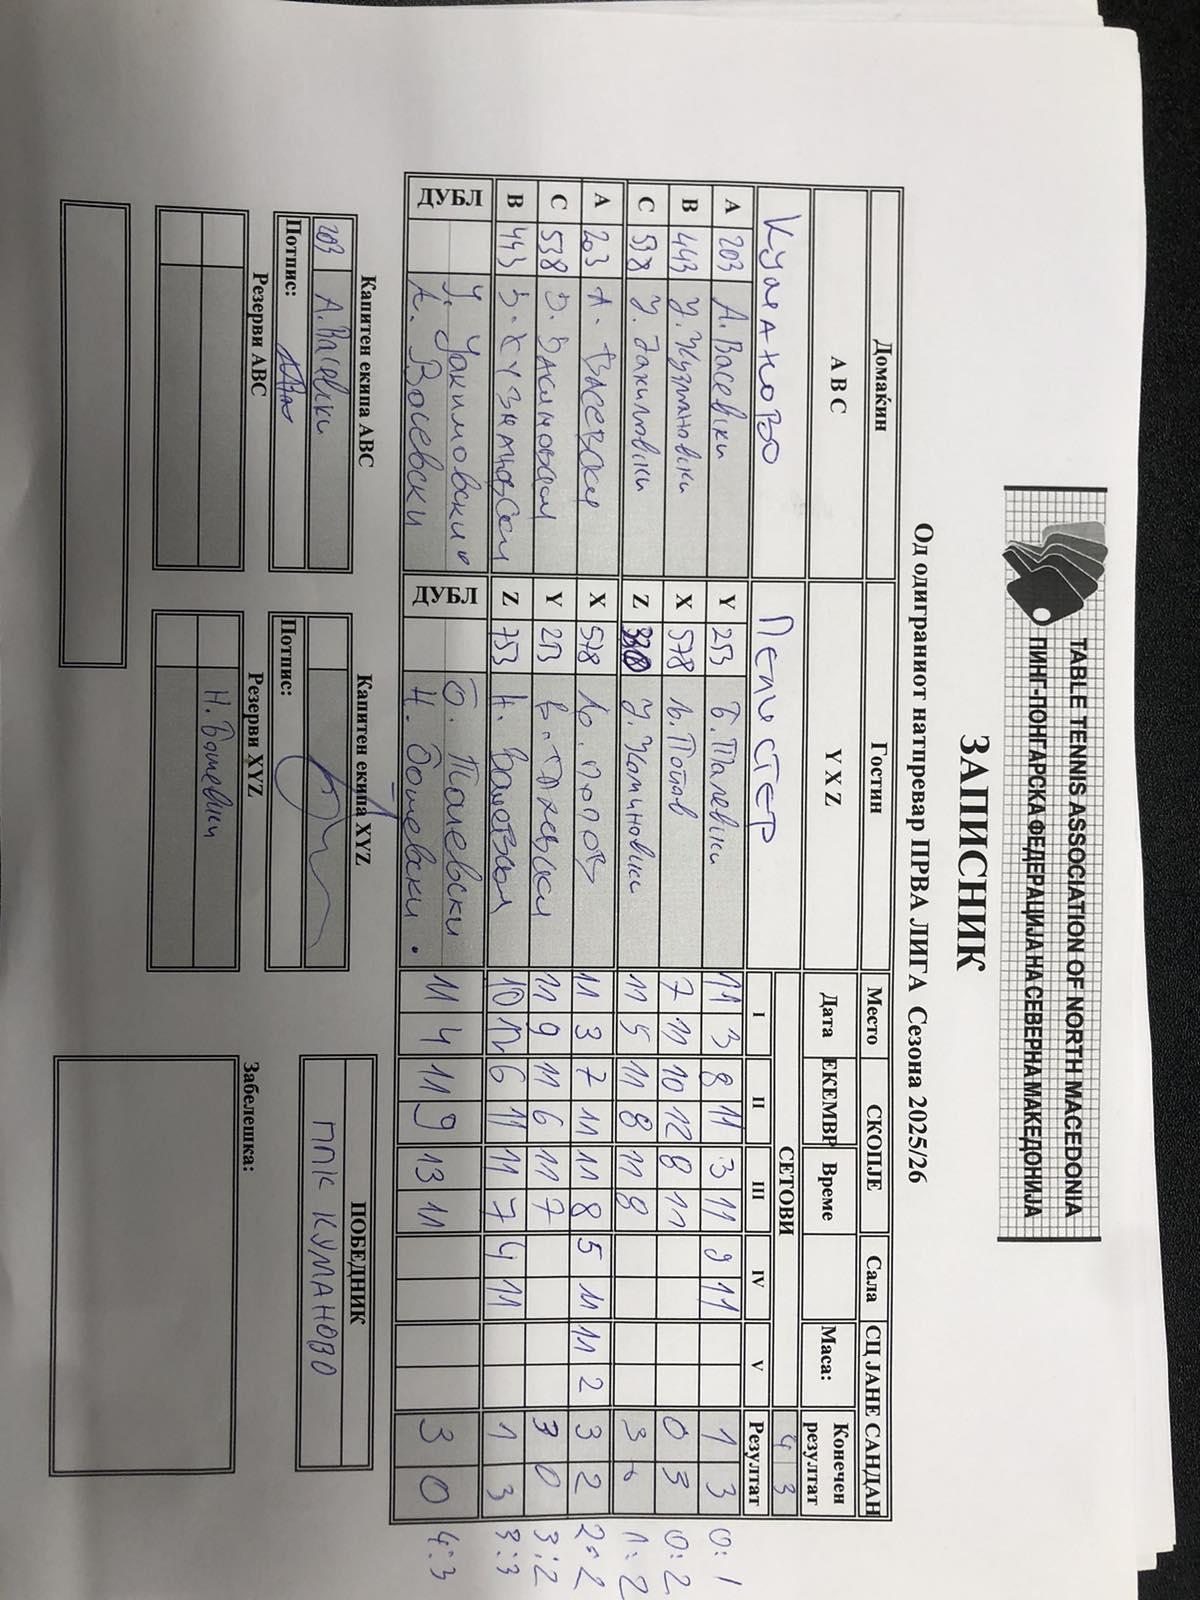 TABLE TENNIS ASSOCIATION OF NORTH MACEDONIA
ПИНГ-ПОНГАРСКА ФЕДЕРАЦИЈА НА СЕВЕРНА МАКЕДОНИЈА
ЗАПИСНИК
Од одиграниот натпревар ПРВА ЛИГА Сезона 2025/26
Домаќин Гостин Место СКОПЈЕ Сала СЦ ЈАНЕ САНДАН
A B C Y X Z Дата ЕКЕМВР Време Маса: Конечен резултат
КУМАНОВО ПЕЛИСТЕР СЕТОВИ 4 3
I II III IV V Резултат
A 203 А. Васевски Y 213 Б. Талевски 11 3 8 11 3 11 9 11 1 3 0:1
B 443 У. Кузмановски X 578 Љ. Попов 7 11 10 12 8 11 0 3 0:2
C 538 У. Јакимовски Z У. 11 5 11 8 11 8 3 1:2
A 203 А. Васевски X 578 Љ. Попов 11 3 7 11 11 8 5 11 11 2 3 2 2:2
C 538 Y 213 11 9 11 6 11 7 3 0 3:2
B 443 Z 753 Н. 10 12 6 11 11 7 4 11 1 3 3:3
ДУБЛ У. Јакимовски ДУБЛ Б. Талевски 11 4 11 9 13 11 3 0 4:3
А. Васевски Н. Бошевски
Капитен екипа ABC Капитен екипа XYZ ПОБЕДНИК
203 А. Васевски ППК КУМАНОВО
Потпис: Потпис:
Резерви ABC Резерви XYZ Забелешка:
Н. Бошевски